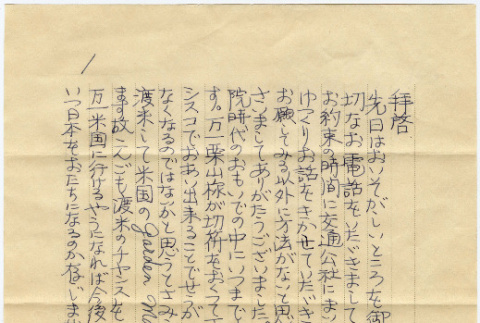 1
拝啓
先日はおいそがしいところを御
切なお電話をいただきまして
お約束の時間に交通公社にまい
ゆっくりお話をきかせていただき
お願してみる以外に方法がないと思
さいましてありがたうございました
院時代のおもいでの中にいつまでも
す。万一栗山様が切符をおくって下
シスコでおあい出来ることでせうが
なくなるのではないかと思うとさみし
渡米して米国のgarden
ます故こんごも渡米のチャンスを
万一米国に行けるやうになれば今後
いつ日本をおたちになるのか存じませ